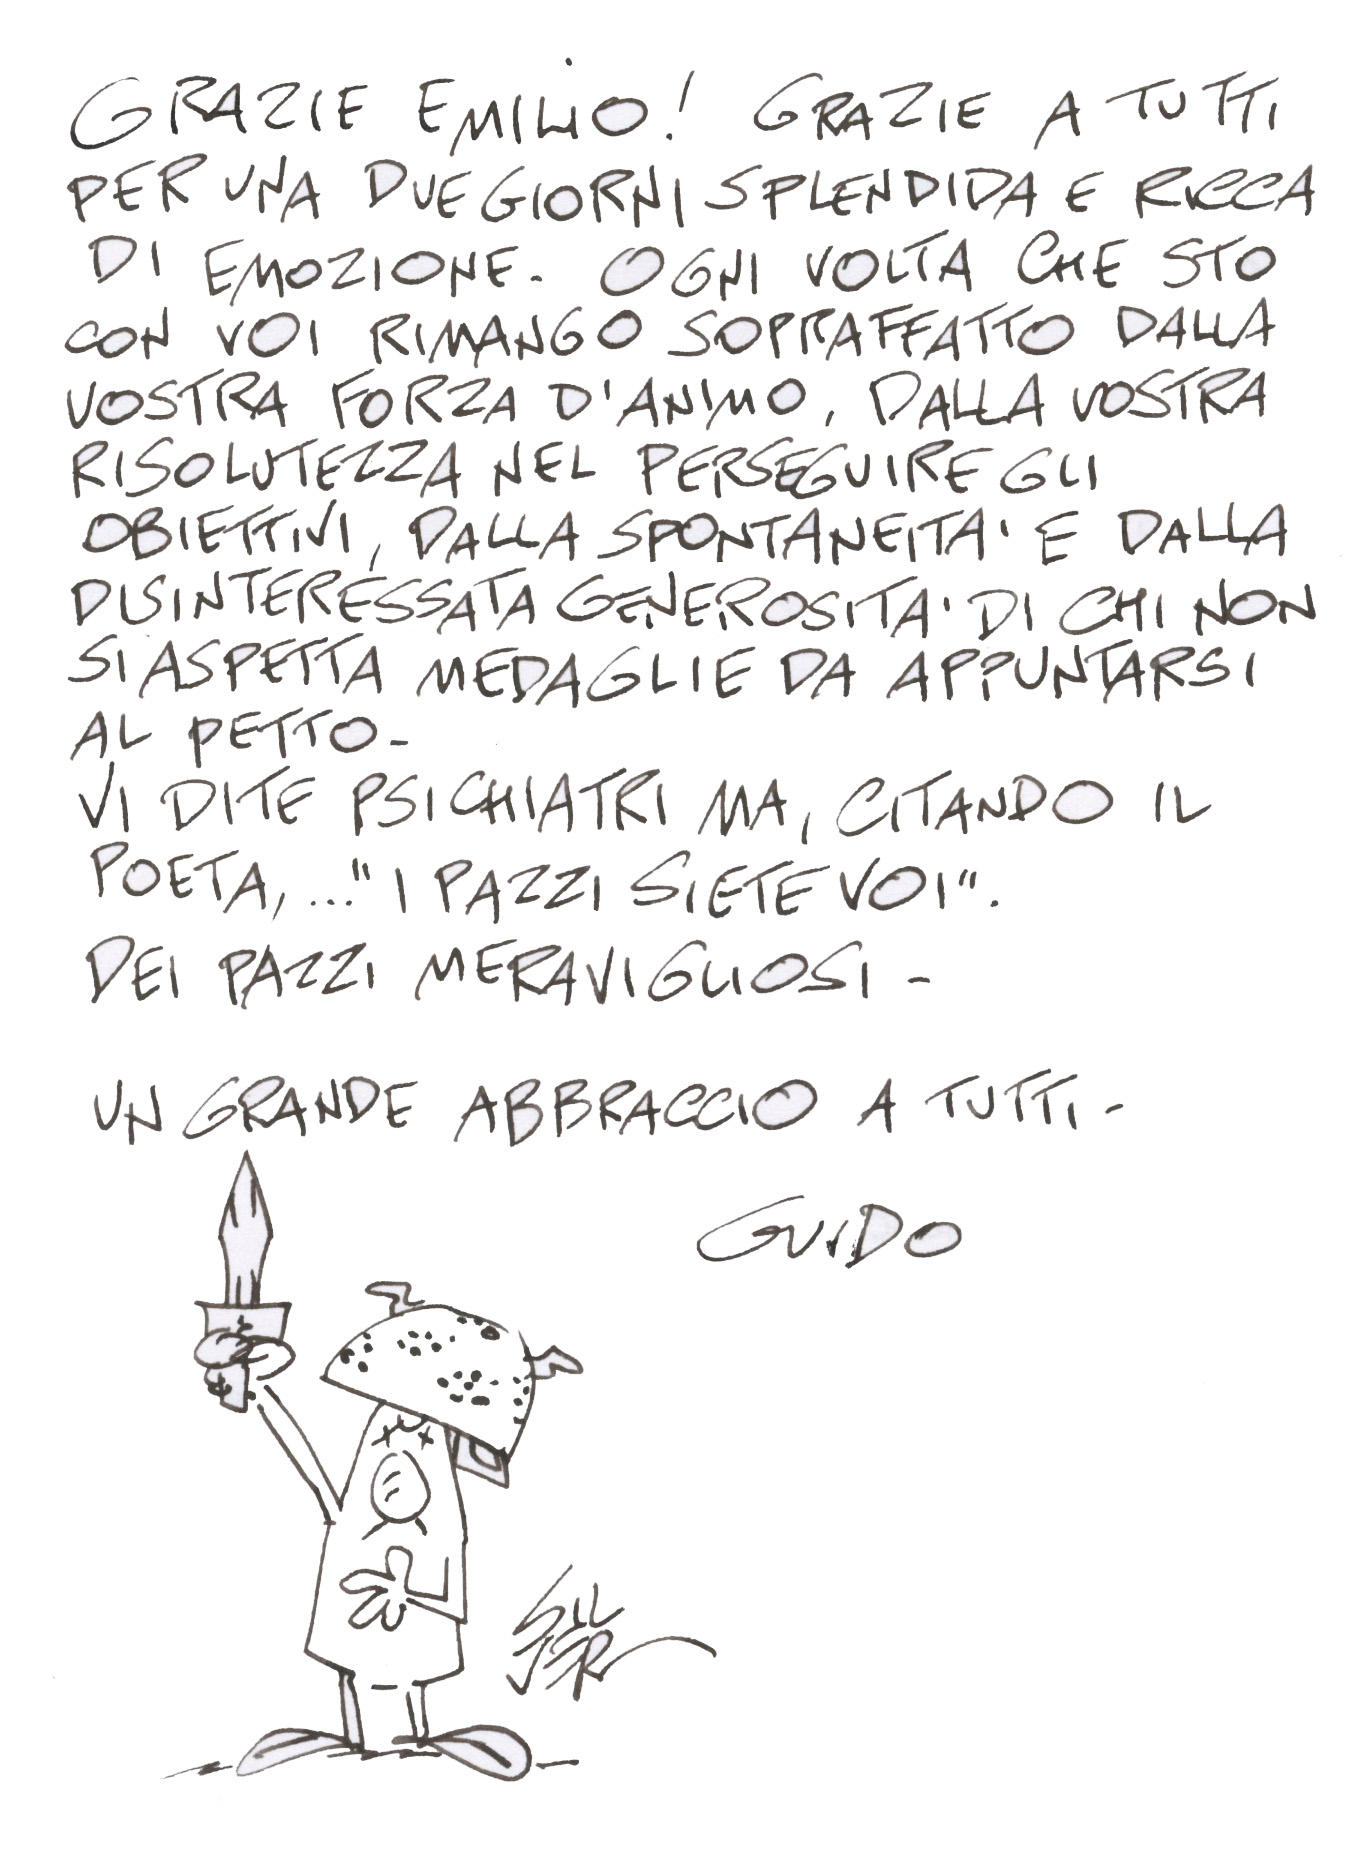 GRAZIE EMILIO! GRAZIE A TUTTI
PER UNA DUE GIORNI SPLENDIDA E RICCA
DI EMOZIONE. OGNI VOLTA CHE STO
CON VOI RIMANGO SOPRAFFATTO DALLA
VOSTRA FORZA D'ANIMO, DALLA VOSTRA
RISOLUTEZZA NEL PERSEGUIRE GLI
OBIETTIVI, DALLA SPONTANEITA' E DALLA
DISINTERESSATA GENEROSITA' DI CHI NON
SI ASPETTA MEDAGLIE DA APPUNTARSI
AL PETTO-
VI DITE PSICHIATRI MA, CITANDO IL
POETA,..."I PAZZI SIETE VOI".
DEI PAZZI MERAVIGLIOSI-
UN GRANDE ABBRACCIO A TUTTI-
GUIDO
SIL
VER